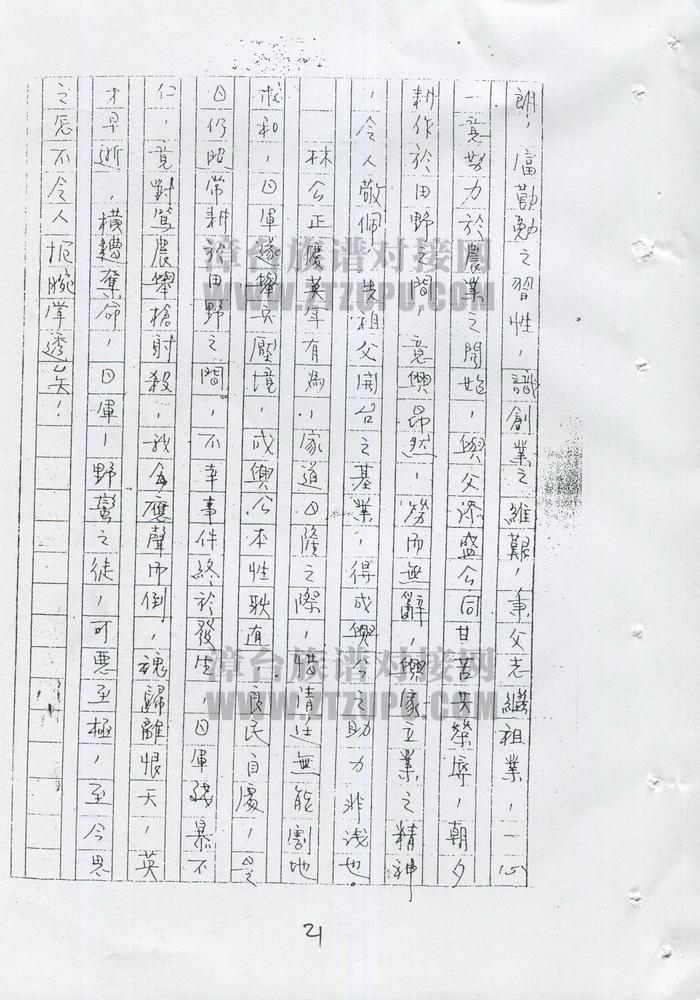 朗，富勤勉之習性，識創業之維艱，秉父志繼祖業，一心
一意努力於農業之開始，與父添盛公同甘苦共榮辱，朝夕
耕作於田野之間，意興昂然，勞而無辭，興家立業之精神
，令人敬佩，先祖父開台之基業，得成興公之助力非浅也。
林公正慶英年有為，家道日隆之際，惜清廷無能割地
求和，日軍遂舉兵壓境，成興公本性耿直，良民自處，是
日仍照常耕於田野之間，不幸事件終於發生，日軍殘暴不
仁，竟對篤農舉槍射殺，我公應聲而倒，魂歸離恨天，英
才早逝，橫遭奪命，日軍，野蠻之徒，可惡至極，至今思
之怎不令人扼腕掌透矣！
21
漳台族谱对接网
WWW.ZTZUPU.COM
漳台族谱对接网
WWW.ZTZUPU.COM